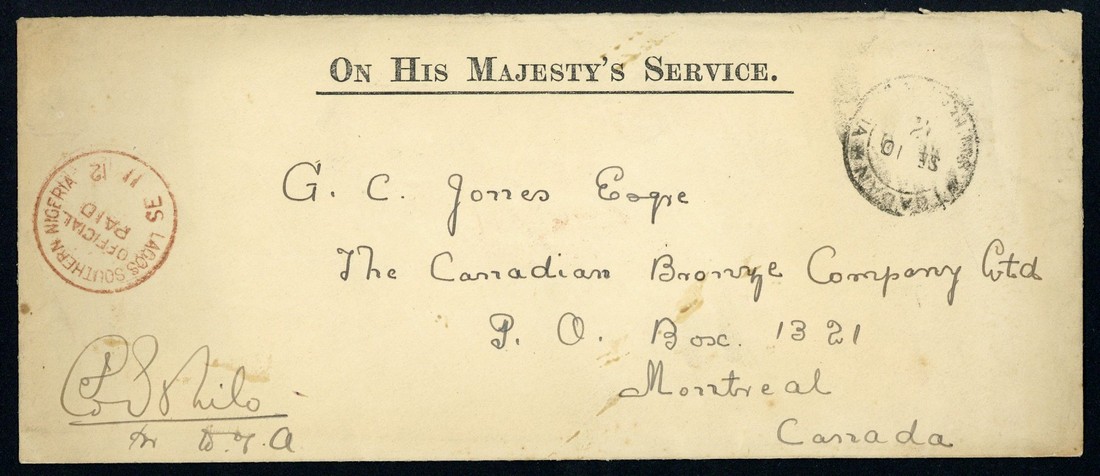 ON HIS MAJESTY'S SERVICE.
G. C. Jones Esqre
The Canadian Bronze Company Ltd
P. O. Box. 1321
Montreal
Canada
LAGOS SOUTHERN NIGERIA
OFFICIAL
PAID
SE 11 12
IBADAN
SE 10